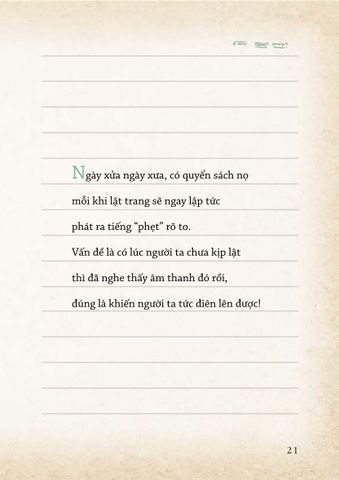 Ngày xửa ngày xưa, có quyển sách nọ
mỗi khi lật trang sẽ ngay lập tức
phát ra tiếng “phẹt” rõ to.
Vấn đề là có lúc người ta chưa kịp lật
thì đã nghe thấy âm thanh đó rồi,
đúng là khiến người ta tức điên lên được!
21